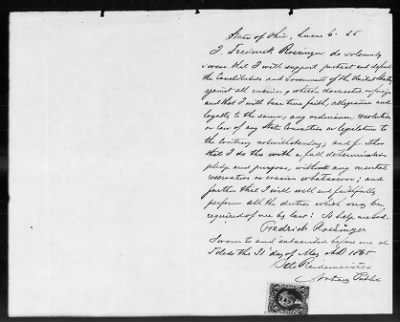 State of Ohio, Lucas Co. SS
I Frederick Rossinger do solemnly
swear that I will support protect and defend
the Constitution and Government of the United States
against all enemies, whether domestic or foreign
and that I will bear true faith, allegiance and
loyalty to the same, any ordinance, resolution
or law of any State Convention or legislature to
the contrary notwithstanding; and further
that I do this with a full determination
pledge and purpose, without any mental
reservation or evasion whatsoever; and
further that I will well and faithfully
perform all the duties which may be
required of me by law: So help me God.
Fredrick Rossinger
Sworn to and subscribed before me at
Toledo this 31st day of May AD 1865
Notary Public